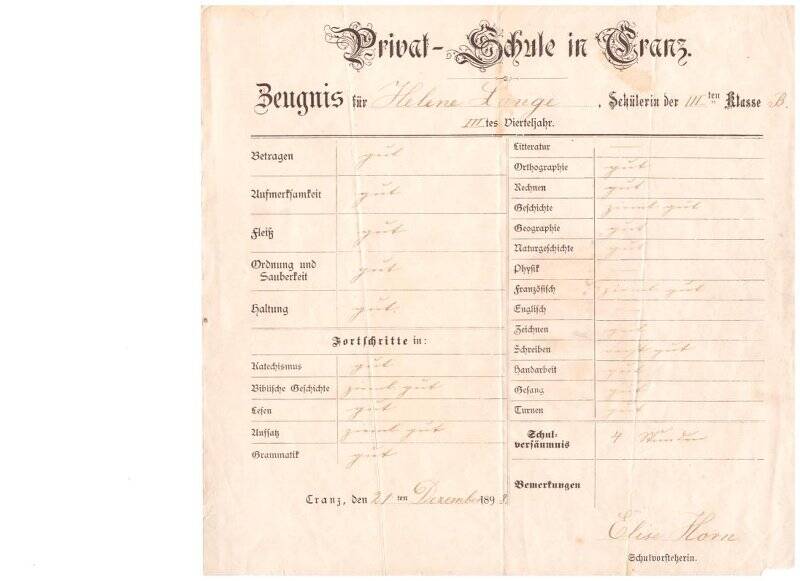 Privat-Schule in Cranz.
Zeugnis für Helene Lange, Schülerin der III ten Klasse B.
III tes Vierteljahr.
Betragen gut
Aufmerksamkeit gut
Fleiß gut
Ordnung und
Sauberkeit gut
Haltung gut.
Fortschritte in:
Katechismus gut
Biblische Geschichte zieml. gut
Lesen gut
Aufsatz zieml. gut
Grammatik gut
Litteratur —
Orthographie gut
Rechnen gut
Geschichte zieml. gut
Geographie gut
Naturgeschichte gut
Physik —
Französisch zieml. gut
Englisch
Zeichnen gut
Schreiben recht gut
Handarbeit gut
Gesang gut
Turnen gut
Schul-
versäumnis 4 Stunden
Bemerkungen
Cranz, den 21 ten Dezember 189
Elise Horn
Schulvorsteherin.